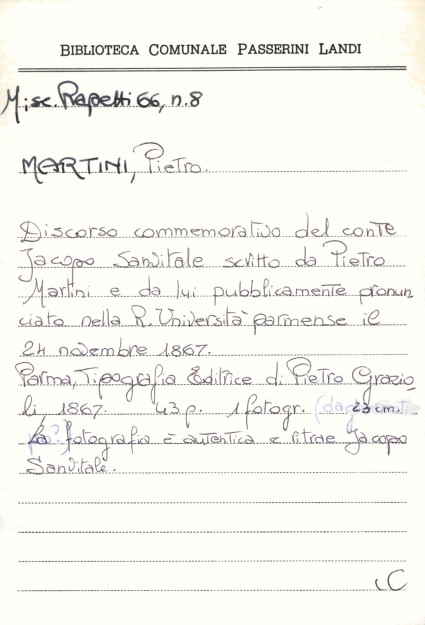 BIBLIOTECA COMUNALE PASSERINI LANDI
Misc. Rapetti 66, n.8
MARTINI, Pietro.
Discorso commemorativo del conte
Jacopo Sanvitale scritto da Pietro
Martini e da lui pubblicamente pronun
ciato nella R. Università parmense il
24 novembre 1867.
Parma, Tipografia Editrice di Pietro Grazio_
li, 1867. 43 p. 1 fotogr. 23 cm.
La fotografia è autentica e ritrae Jacopo
Sanvitale.